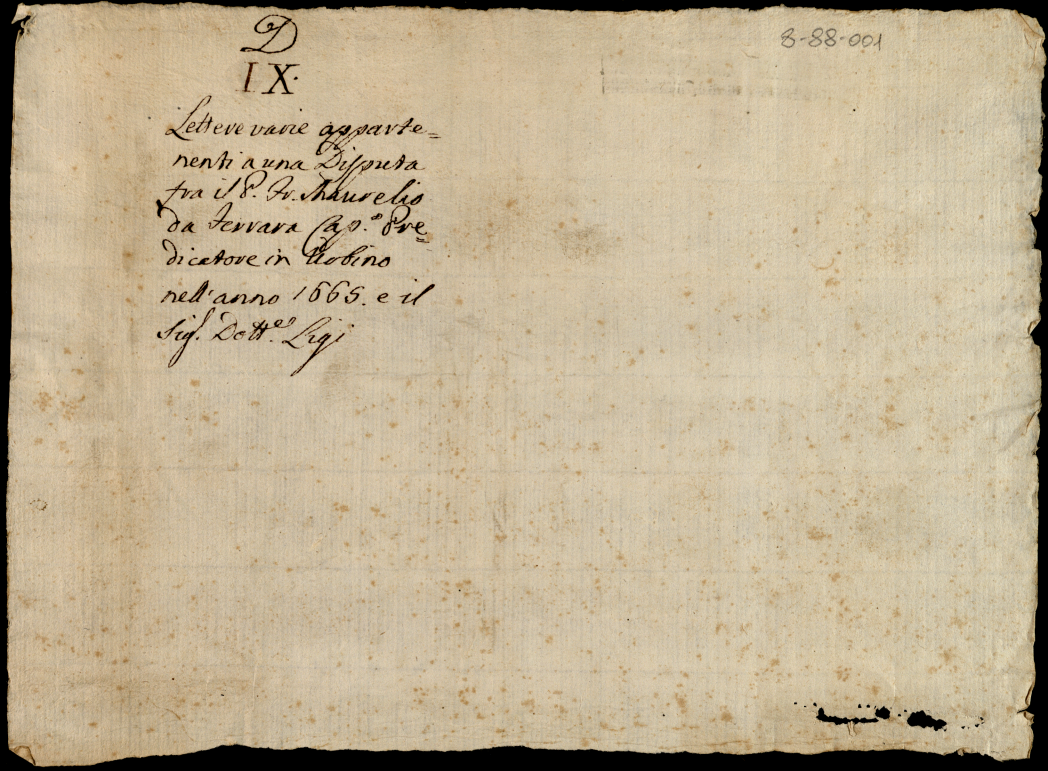 8-88-001
D
IX.
Lettere varie apparte=
nenti a una Disputa
tra il P. Fr. Maurelio
da Ferrara Cap.o Pre=
dicatore in Urbino
nell'anno 1665. e il
Sig.r Dott.e Ligi